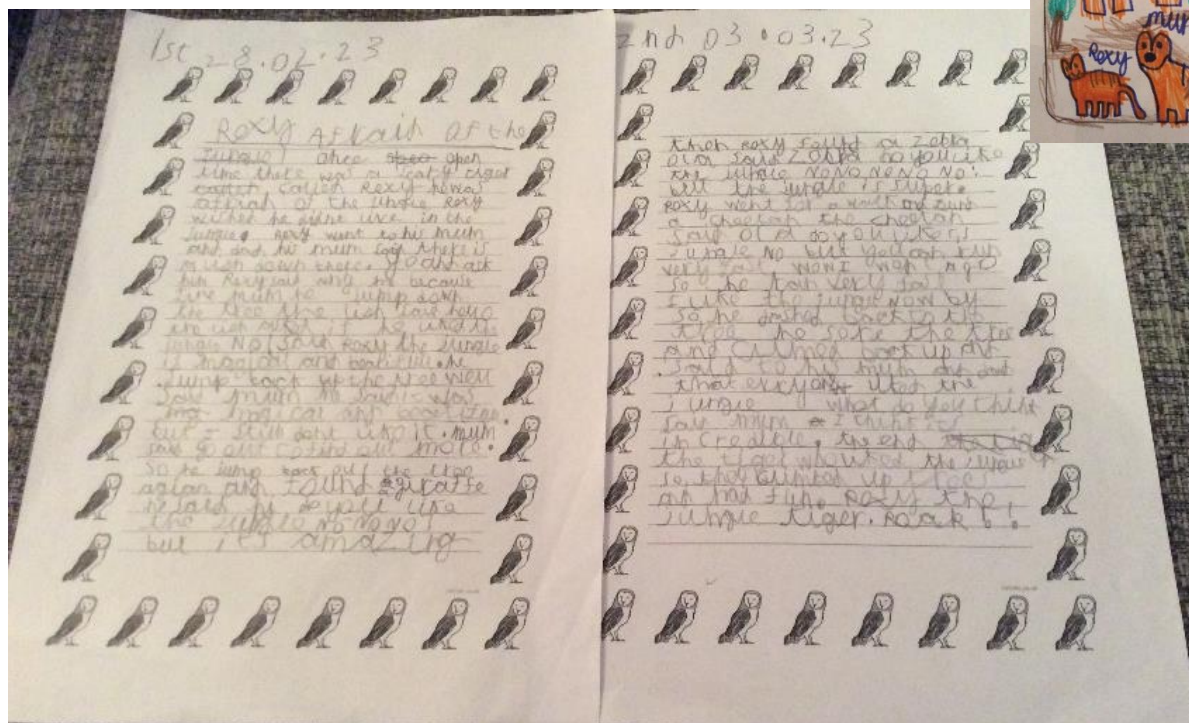 1st 28.02.23
Roxy Afraid Of the
Jungle! Once open
time there was a tiger
called Roxy he was
afraid of the jungle Roxy
wished he didnt live in the
Jungle. Roxy went to his mum
and his mum said there is
down there. go and ask
him Roxy said because
mum he jump down
the tree the
if he liked the
jungle No! said Roxy the Jungle
is magical and he
Jump back up the tree well
said mum he said it was
magical and
but I still dont like it. mum
said go and find out more.
So he jump out the tree
agian and found a giraffe
he said do you like
the jungle No No No!
but its amazing
2nd 03.03.23
then Roxy found a Zebra
and said Zebra do you like
the jungle NO NO NO NO NO!
but the jungle is super.
Roxy went for a walk and
a cheetah the cheetah
said do you like
jungle No but you can run
very fast wow! wow!
so he ran very fast
I like the jungle now by
so he dashed back to the
tree he the tree
and climed back up and
said to his mum
that evryone liked the
jungle what do you think
said mum I think its
incredible. the end
the tiger the jungle
so they climbed up tree
and had fun. Roxy the
jungle tiger. ROAR!
mum
Roxy